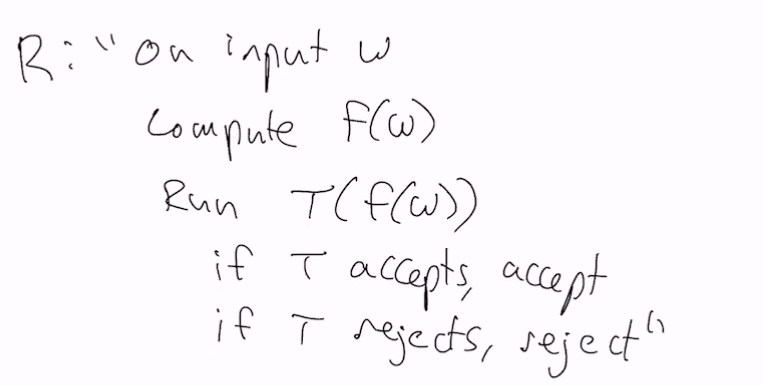 R: "On input w
Compute f(w)
Run T(f(w))
if T accepts, accept
if T rejects, reject"